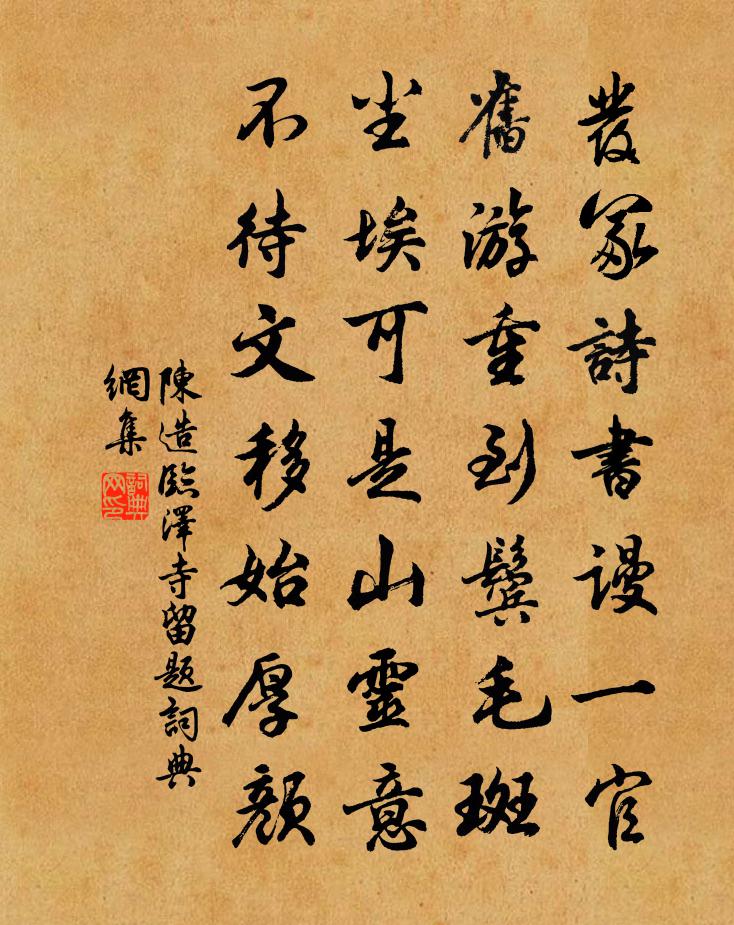 發冢詩書謾一官
舊游重到鬢毛斑
尘埃可是山靈意
不待文移始厚顏
陳造臨澤寺留題詞典
網集
詞典
网印